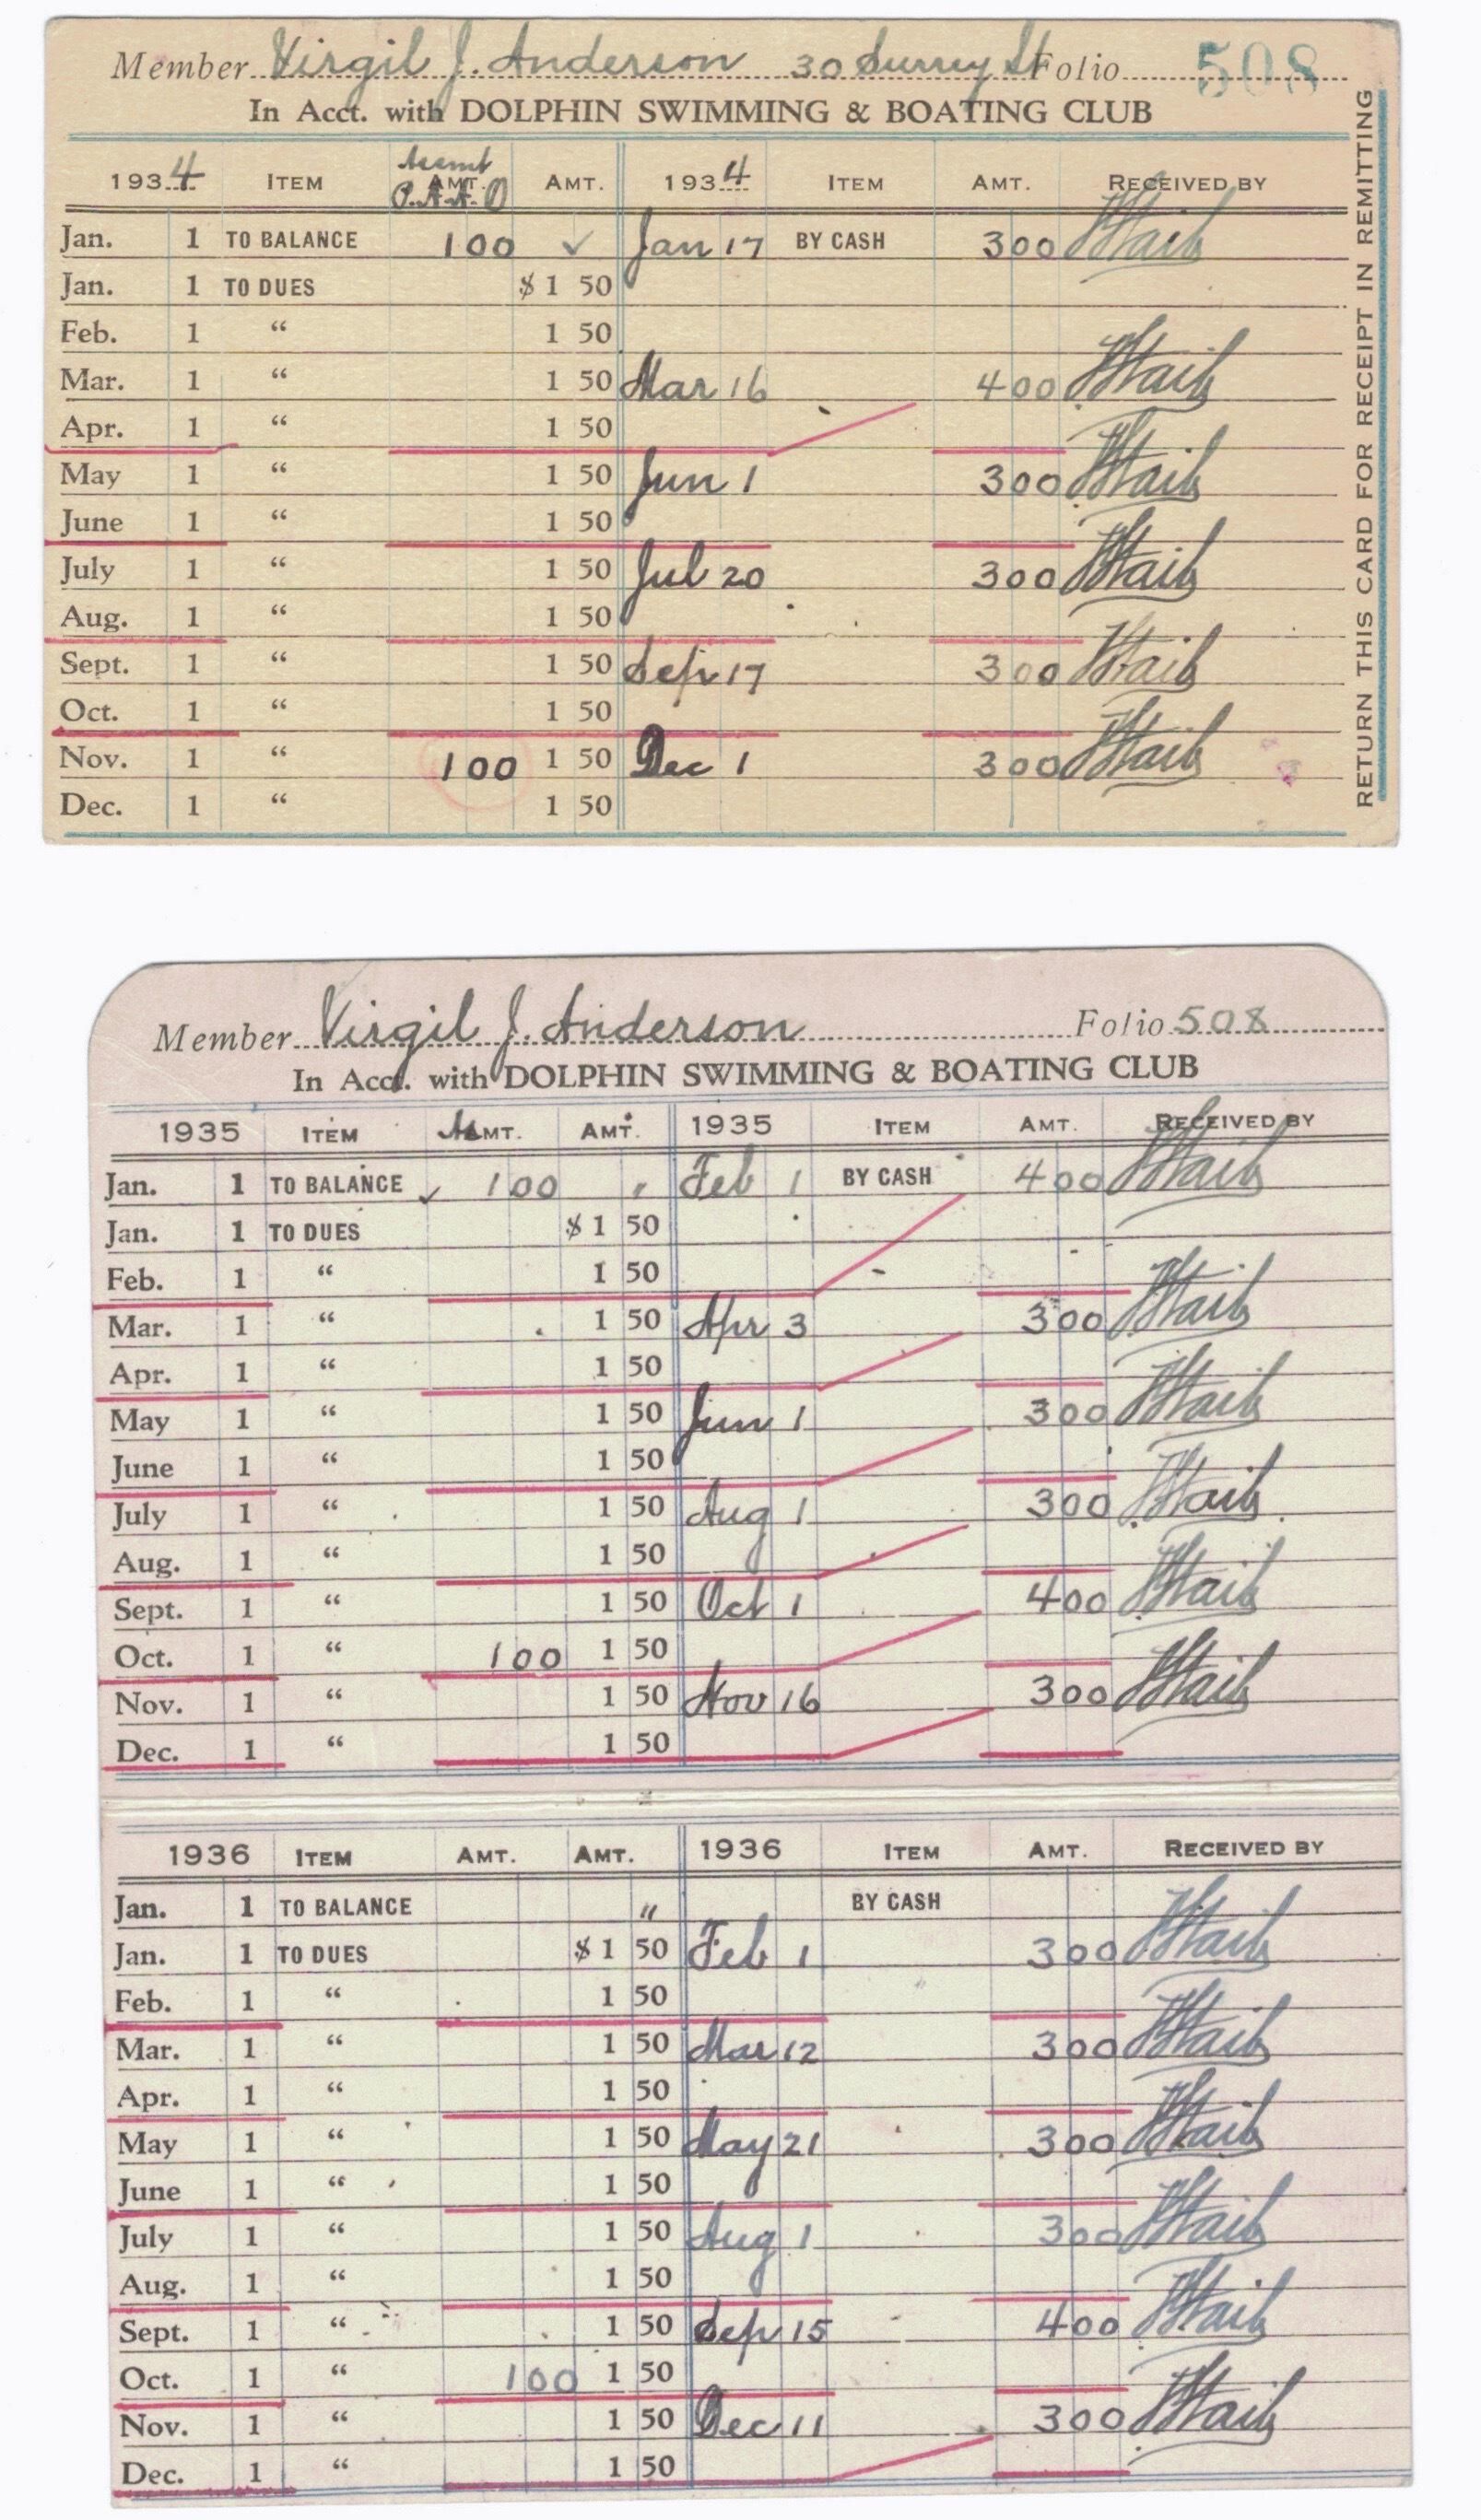 Member Virgil J. Anderson 30 Surrey St Folio 508
In Acct. with DOLPHIN SWIMMING & BOATING CLUB
RETURN THIS CARD FOR RECEIPT IN REMITTING
1934 ITEM AMT. AMT. 1934 ITEM AMT. RECEIVED BY
Jan. 1 TO BALANCE 100 ✓ Jan 17 BY CASH 300
Jan. 1 TO DUES $1 50
Feb. 1 “ 1 50
Mar. 1 “ 1 50 Mar 16 400
Apr. 1 “ 1 50
May 1 “ 1 50 Jun 1 300
June 1 “ 1 50
July 1 “ 1 50 Jul 20 300
Aug. 1 “ 1 50
Sept. 1 “ 1 50 Sep 17 300
Oct. 1 “ 1 50
Nov. 1 “ 100 1 50 Dec 1 300
Dec. 1 “ 1 50
Member Virgil J. Anderson Folio 508
In Acct. with DOLPHIN SWIMMING & BOATING CLUB
1935 ITEM AMT. AMT. 1935 ITEM AMT. RECEIVED BY
Jan. 1 TO BALANCE ✓ 100 Feb 1 BY CASH 400
Jan. 1 TO DUES $1 50
Feb. 1 “ 1 50
Mar. 1 “ 1 50 Apr 3 300
Apr. 1 “ 1 50
May 1 “ 1 50 Jun 1 300
June 1 “ 1 50
July 1 “ 1 50 Aug 1 300
Aug. 1 “ 1 50
Sept. 1 “ 1 50 Oct 1 400
Oct. 1 “ 100 1 50
Nov. 1 “ 1 50 Nov 16 300
Dec. 1 “ 1 50
1936 ITEM AMT. AMT. 1936 ITEM AMT. RECEIVED BY
Jan. 1 TO BALANCE " BY CASH
Jan. 1 TO DUES $1 50 Feb 1 300
Feb. 1 “ 1 50
Mar. 1 “ 1 50 Mar 12 300
Apr. 1 “ 1 50
May 1 “ 1 50 May 21 300
June 1 “ 1 50
July 1 “ 1 50 Aug 1 300
Aug. 1 “ 1 50
Sept. 1 “ 1 50 Sep 15 400
Oct. 1 “ 100 1 50
Nov. 1 “ 1 50 Dec 11 300
Dec. 1 “ 1 50